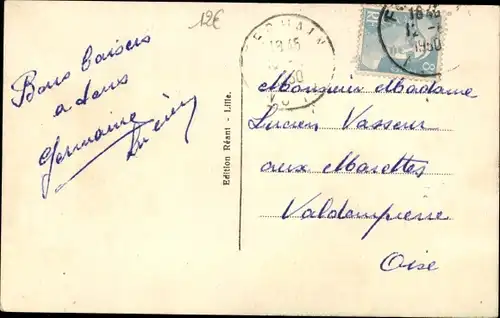 12€
Bons baisers
a dous
Germaine
Lucien
Edition Réant - Lille.
18 45
1950
RF
8
18 45
12 -
1950
Monsieur Madame
Lucien Vasseur
aux Marettes
Valdampierre
Oise